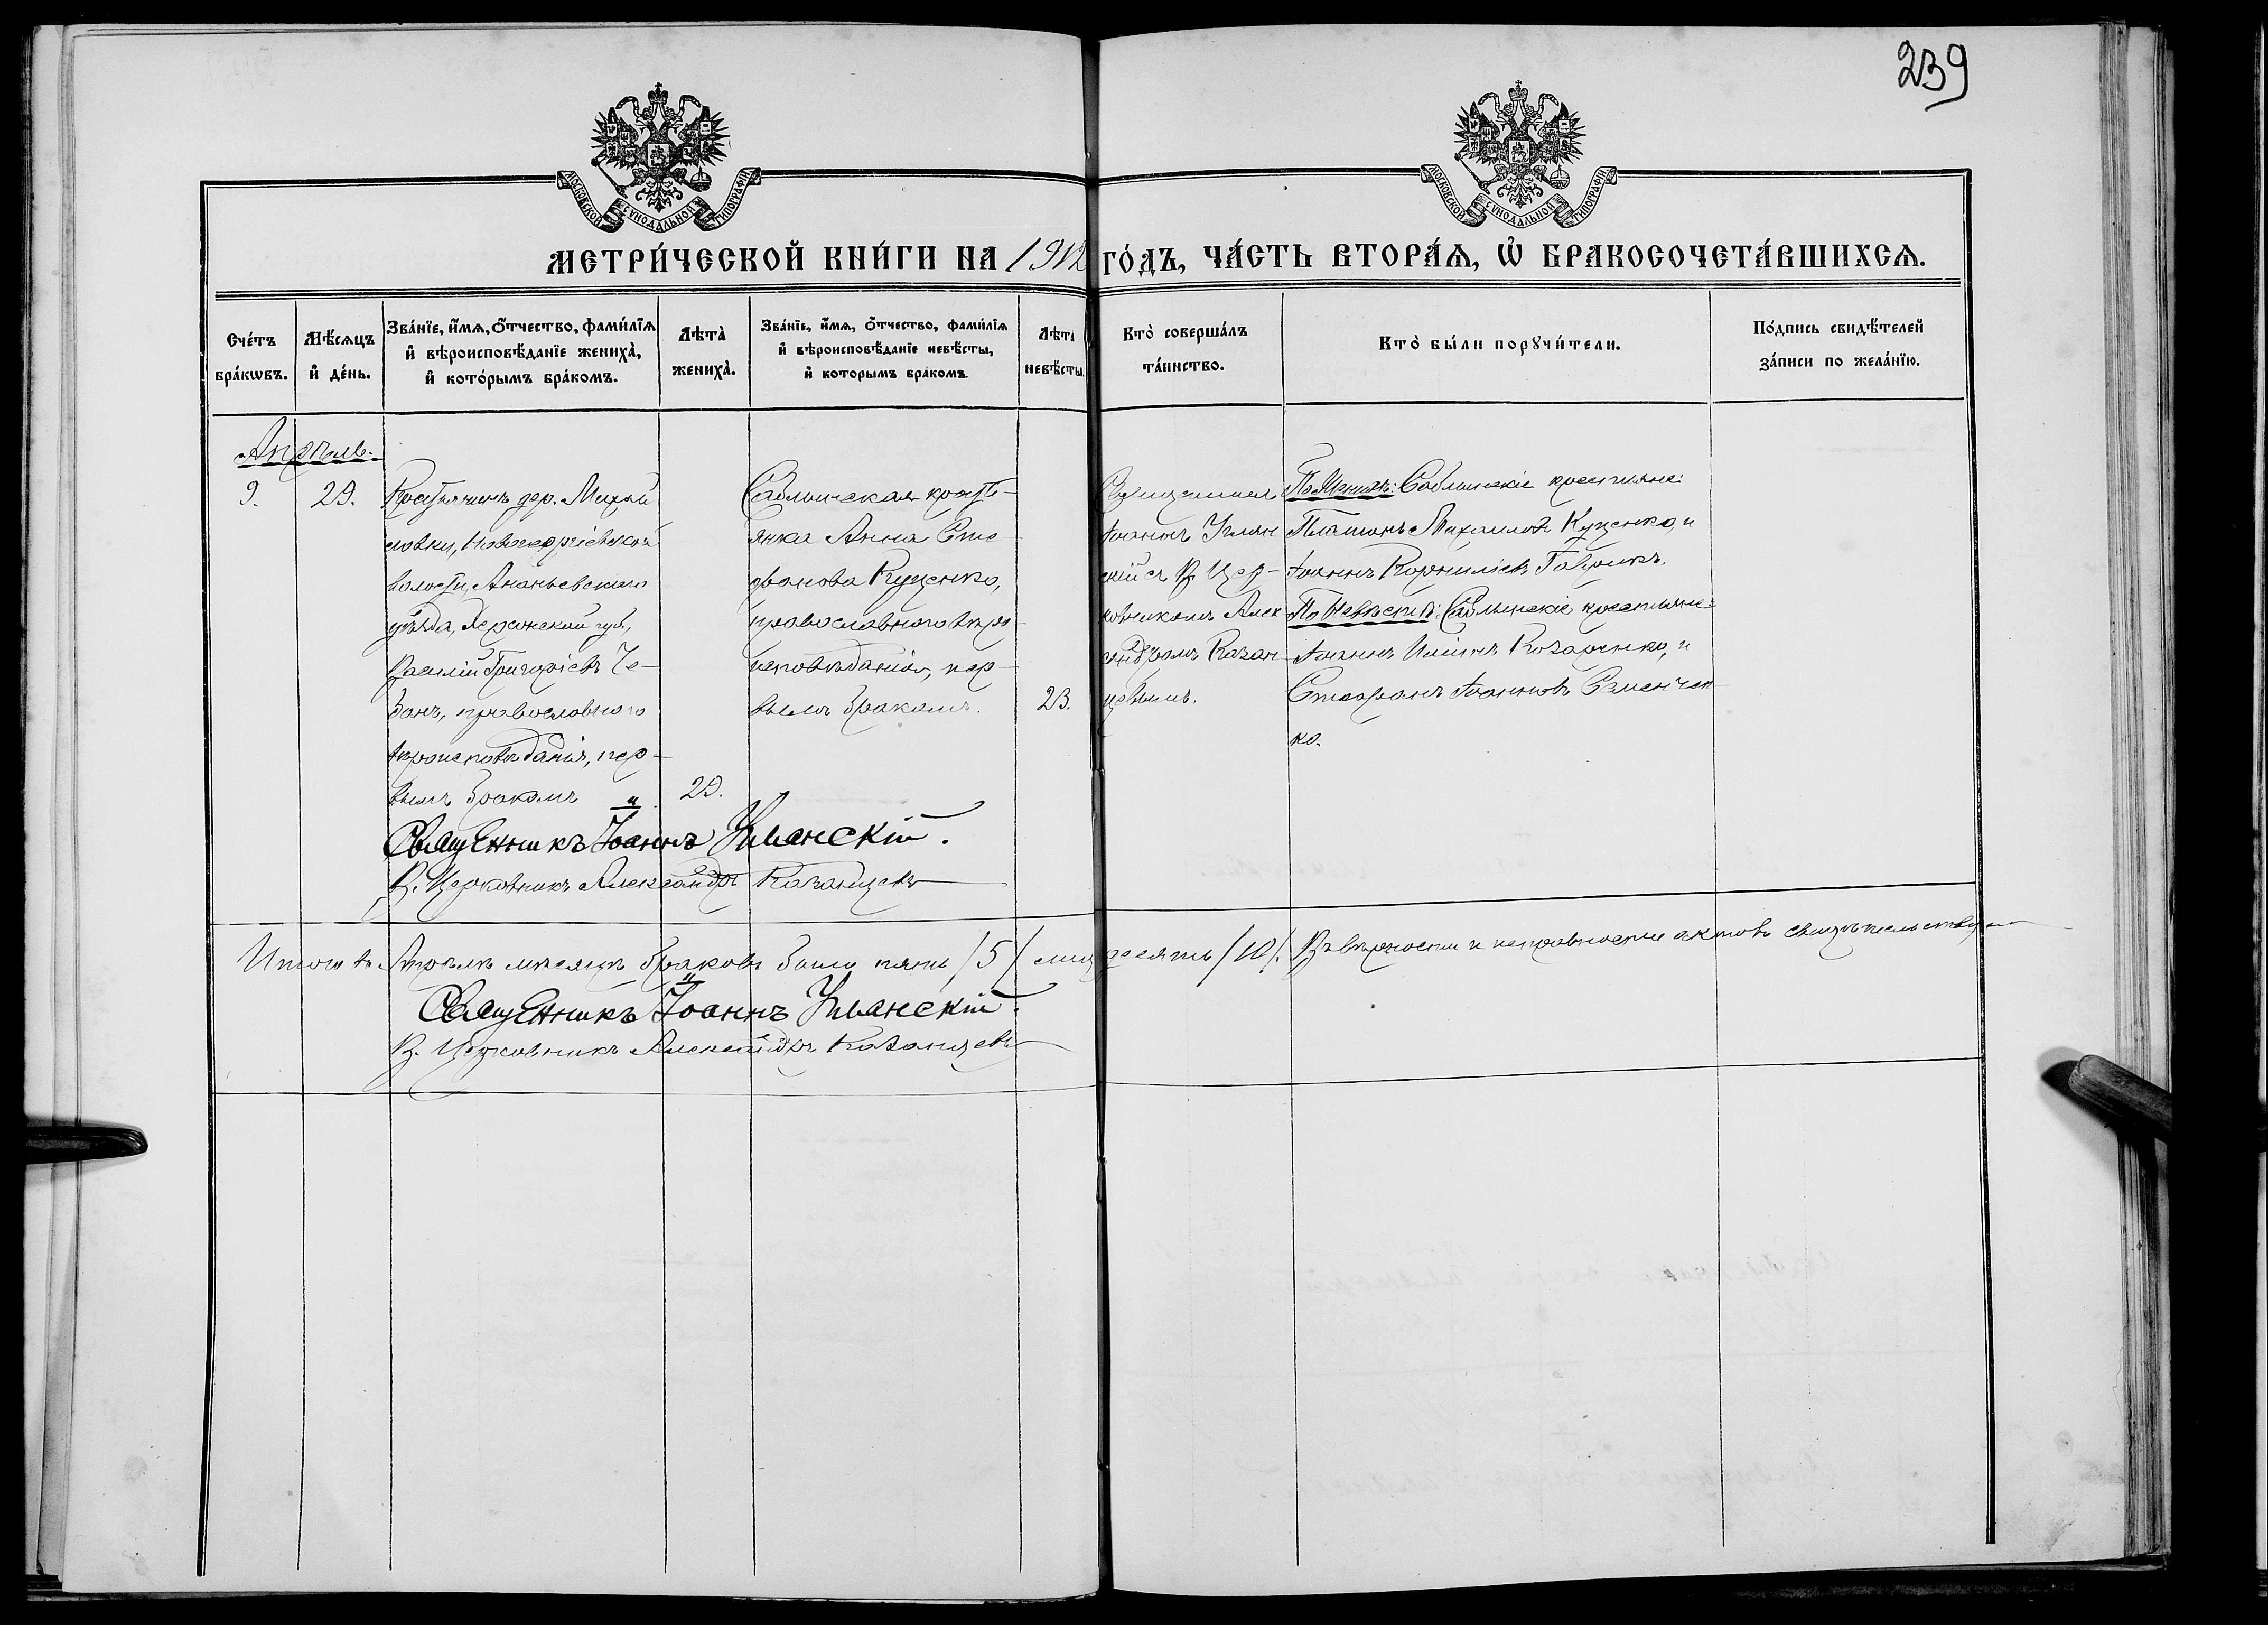 239
МОСКОВСКОЙ СѴНОДАЛЬНОЙ ТИПОГРАФІИ
МОСКОВСКОЙ СѴНОДАЛЬНОЙ ТИПОГРАФІИ
МЕТРИ́ЧЕСКОЙ КНИ́ГИ НА 1912 ГО́ДЪ, ЧА́СТЬ ВТОРА́Я, Ѡ҆ БРАКОСОЧЕТА́ВШИХСЯ.
Сче́тъ
бра́кѡвъ.
Мѣ́сяцъ
и҆ де́нь.
Зва́нїе, и҆́мѧ, ѻ҆́тчество, фами́лїѧ
и҆ вѣроисповѣ́данїе жениха̀,
и҆ кото́рымъ бра́комъ.
Лѣта̀
жениха̀.
Зва́нїе, и҆́мѧ, ѻ҆́тчество, фами́лїѧ
и҆ вѣроисповѣ́данїе невѣ́сты,
и҆ кото́рымъ бра́комъ
Лѣта
невѣ́сты.
Кто̀ соверша́лъ
та́инство.
Кто̀ бы́ли порꙋчи́тели.
По́дпись свидѣ́телей
за́писи по жела́нїю.
Апрѣль.
9.
29.
Крестьянинъ дер. Михай
ловки, Новогеоргіевской
волости, Ананьевскаго
уѣзда, Херсонской губ,
Василій Григоріевъ Че-
банъ, православного
вѣроисповѣданія, пер-
вымъ бракомъ
29.
Саблинская кресть-
янка Анна Сте
фанова Куценко,
православного вѣро
исповѣданія, пер-
вымъ бракомъ.
23.
Священникъ
Іоаннъ Уман
скій съ В. Цер-
ковникомъ Алек
сандромъ Казан
цевымъ.
По Женихѣ: Саблинскіе крестьяне:
Платонъ Михаиловъ Куценко, и
Іоаннъ Корниліевъ Гаврикъ.
По Невѣстѣ: Саблинскіе крестьяне:
Іоаннъ Иліинъ Козаренко, и
Стефанъ Іоанновъ Семенчен-
ко.
Священникъ Іоаннъ Уманскій.
В. Церковникъ Александръ Казанцевъ
Итого въ Апрѣлѣ мѣсяцѣ браковъ было пять /5/ лицъ десять /10/. Въ вѣрности и исправности актовъ свидѣтельствуемъ
Священникъ Іоаннъ Уманскій.
В. Церковникъ Александръ Казанцевъ